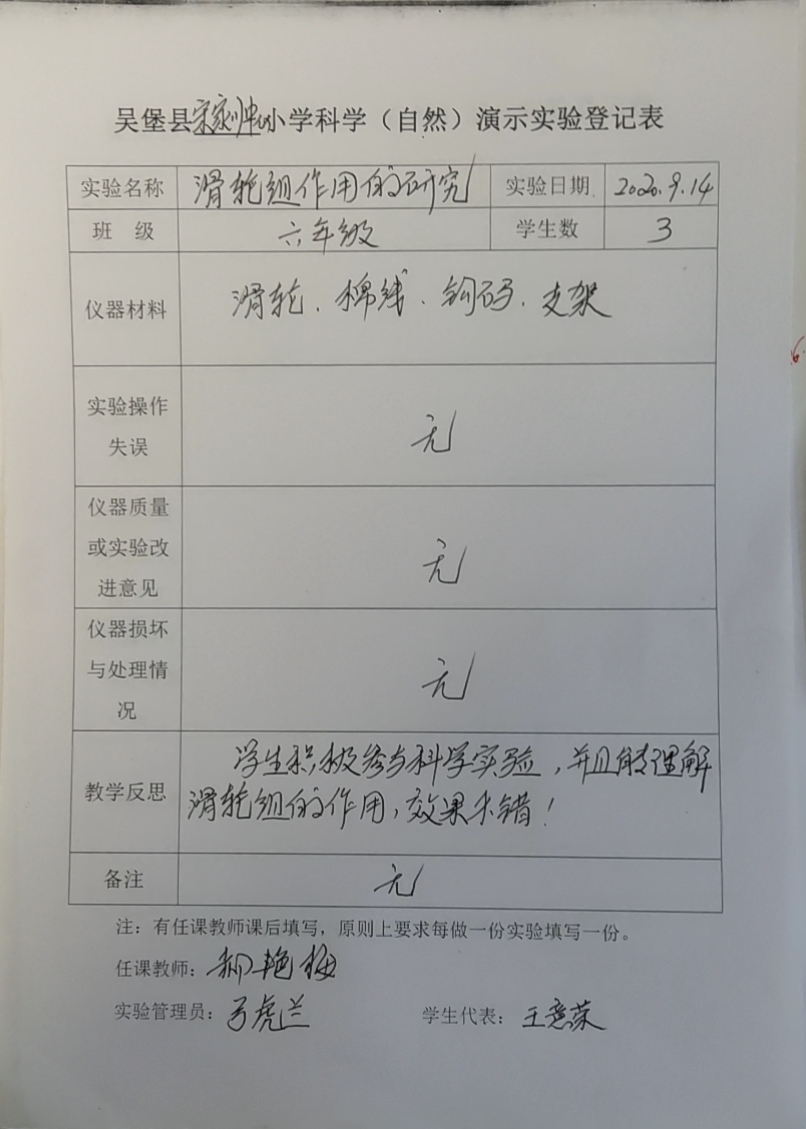 吴堡县宋家川小学科学（自然）演示实验登记表
实验名称 滑轮组作用的研究 实验日期 2020.9.14
班 级 六年级 学生数 3
仪器材料 滑轮、棉线、钩码、支架
实验操作
失误
无
仪器质量
或实验改
进意见
无
仪器损坏
与处理情
况
无
教学反思
学生积极参与科学实验，并且能理解
滑轮组的作用，效果不错！
备注 无
注：有任课教师课后填写，原则上要求每做一份实验填写一份。
任课教师：郝艳梅
实验管理员：弓虎兰 学生代表：王意荣
6.